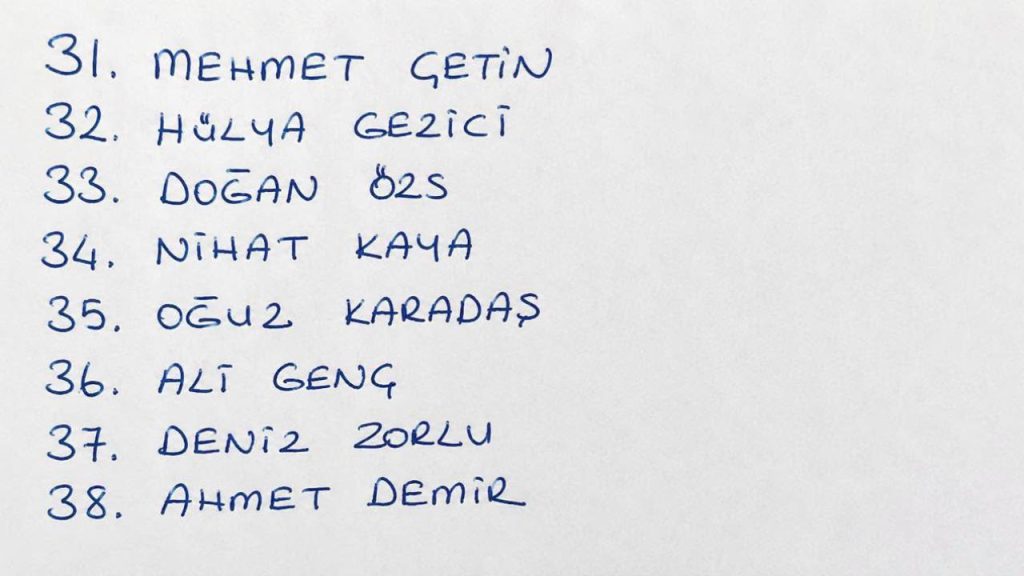 31. MEHMET ÇETİN
32. HÜLYA GEZİCİ
33. DOĞAN ÖZS
34. NİHAT KAYA
35. OĞUZ KARADAŞ
36. ALİ GENÇ
37. DENİZ ZORLU
38. AHMET DEMİR